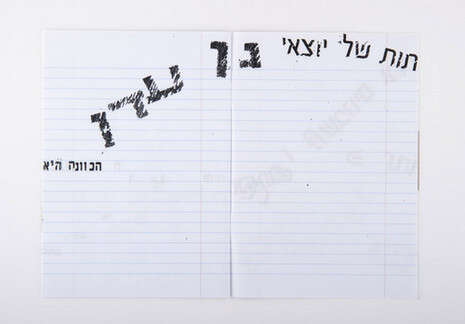 תות של יוצאי גן עדן
הכוונה היא